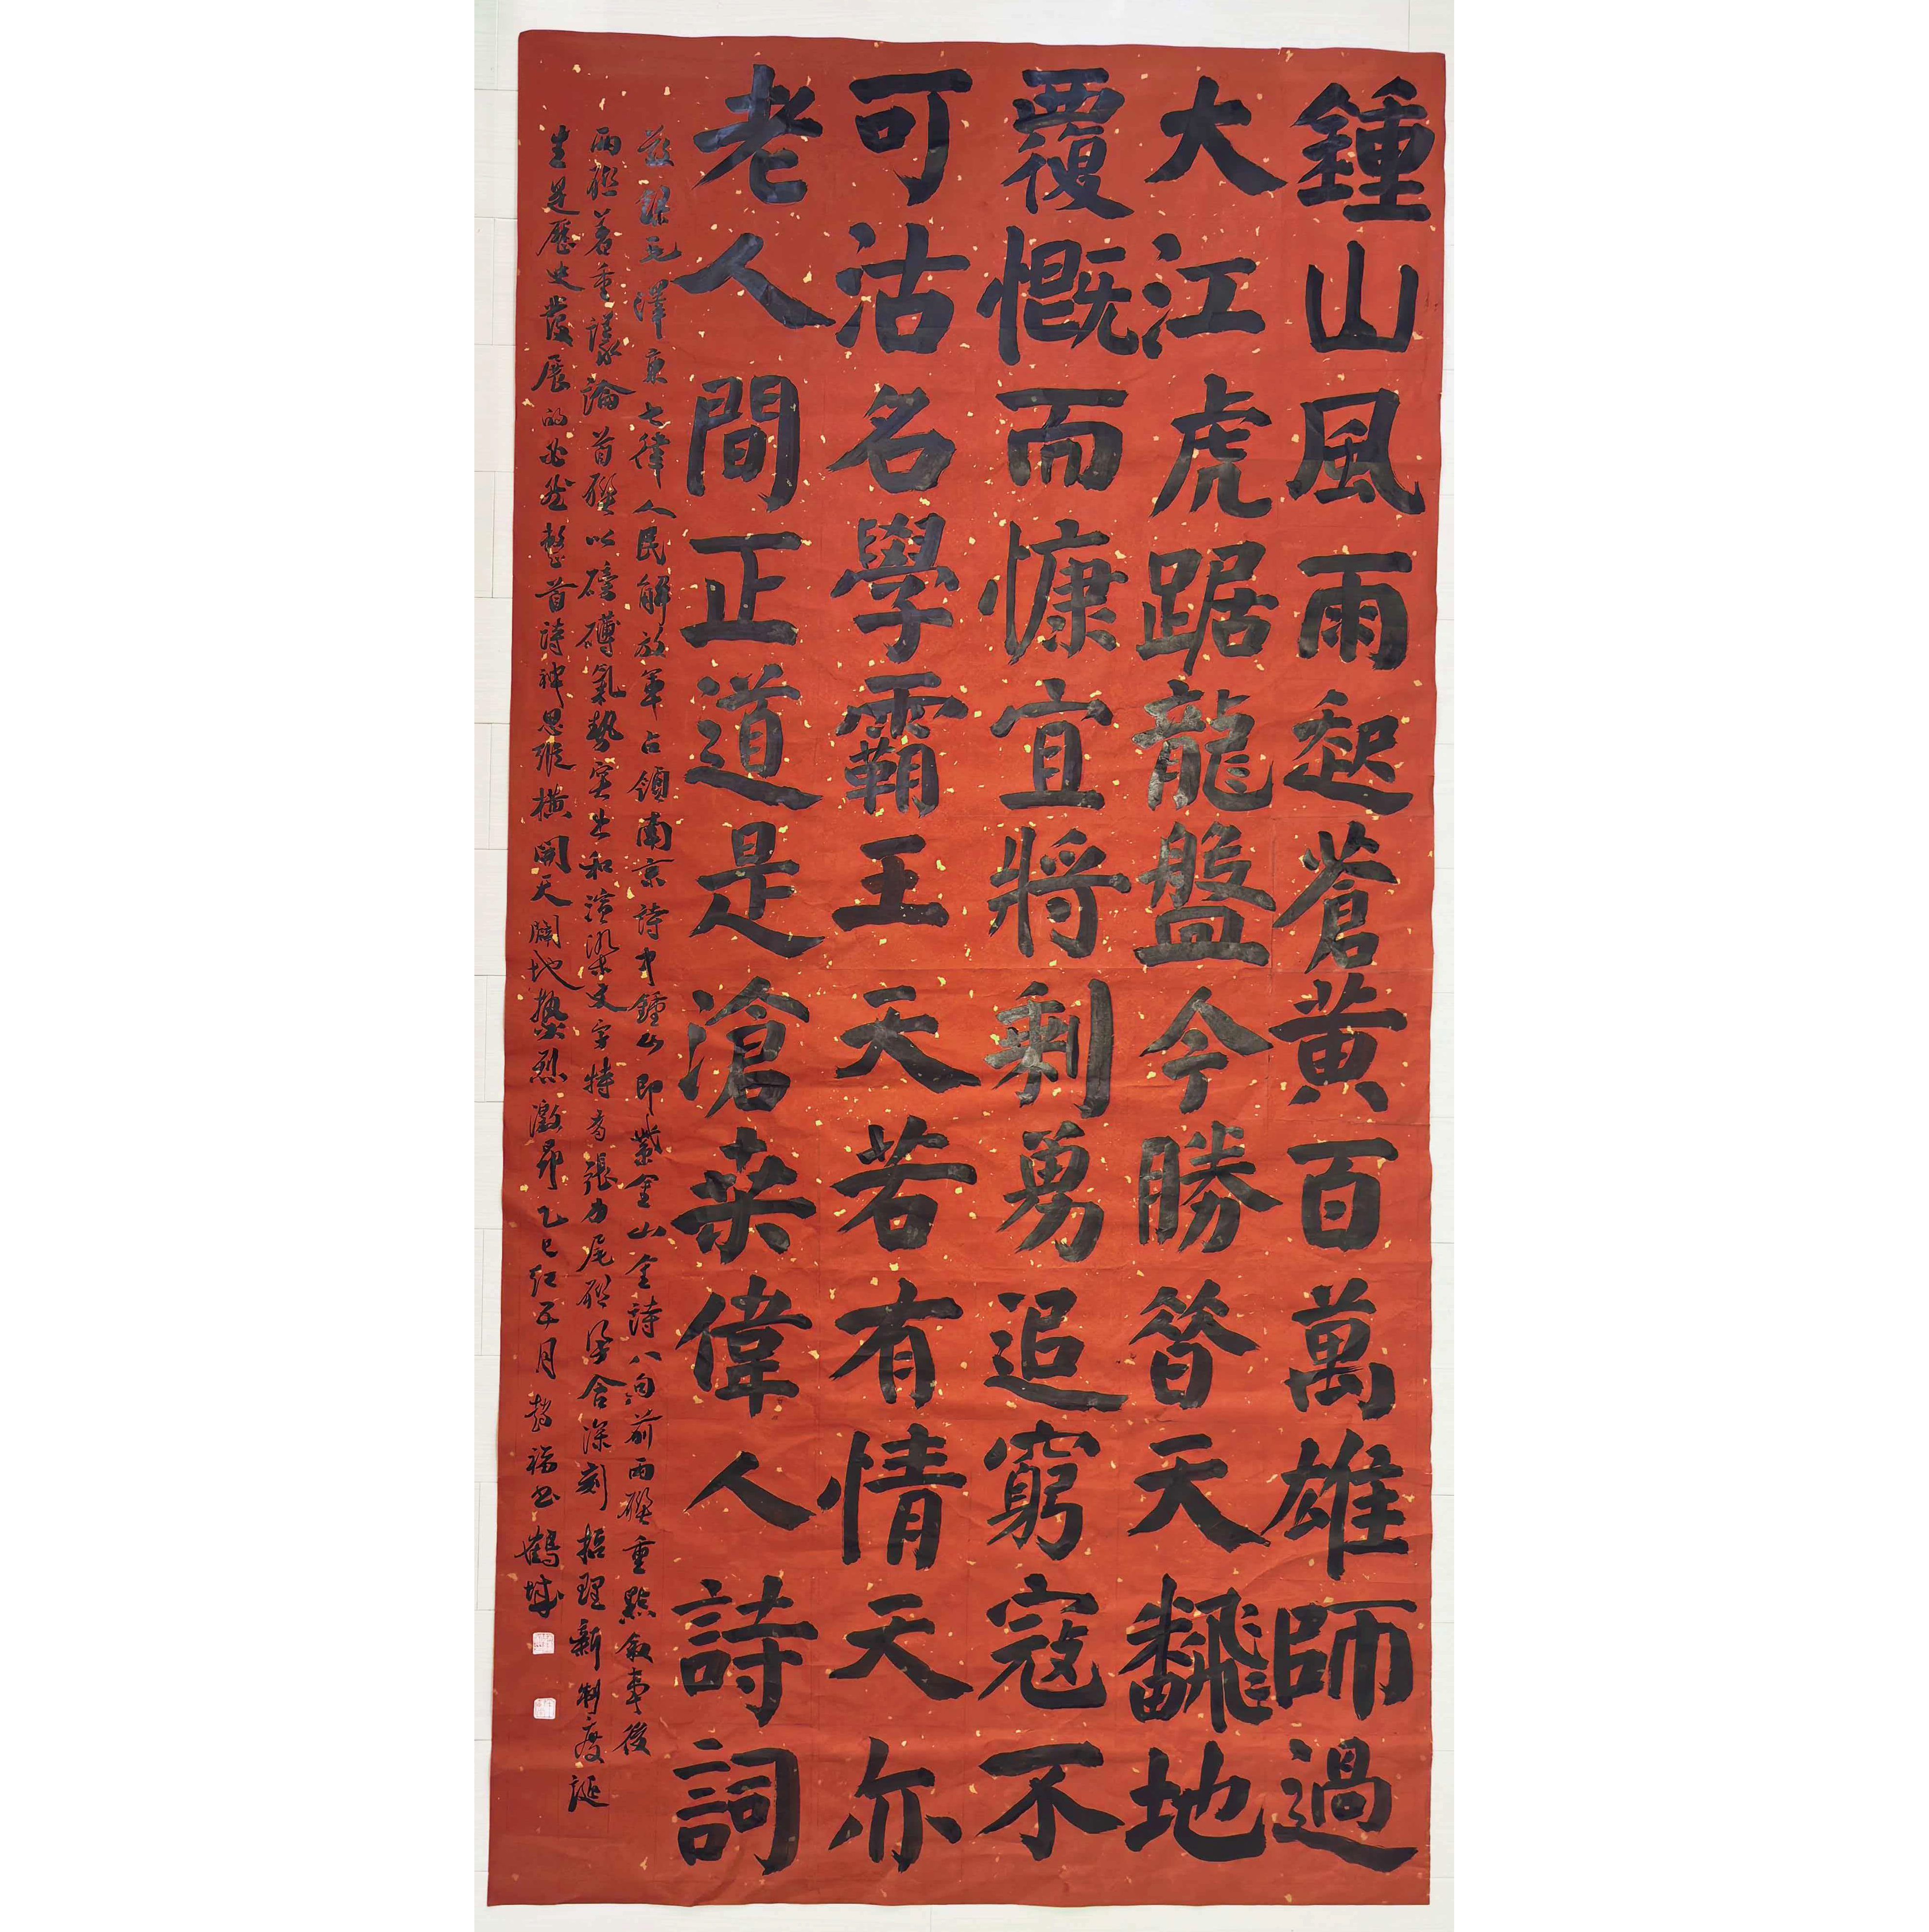 鍾山風雨起蒼黃百萬雄師過
大江虎踞龍盤今勝昔天飜地
覆慨而慷宜將剩勇追窮寇不
可沽名學霸王天若有情天亦
老人間正道是滄桒偉人詩詞
茲録毛澤東七律人民解放軍占領南京詩中鍾山即紫金山全詩八句前兩聯重點敘事後
兩聯着重議論首聯以磅礴氣勢突出和渲染文字特有張力尾聯含深刻哲理新制度誕
生是歷史發展的必然整首詩神思縱橫開天闢地熱烈激昂乙巳紅五月福書鶴城